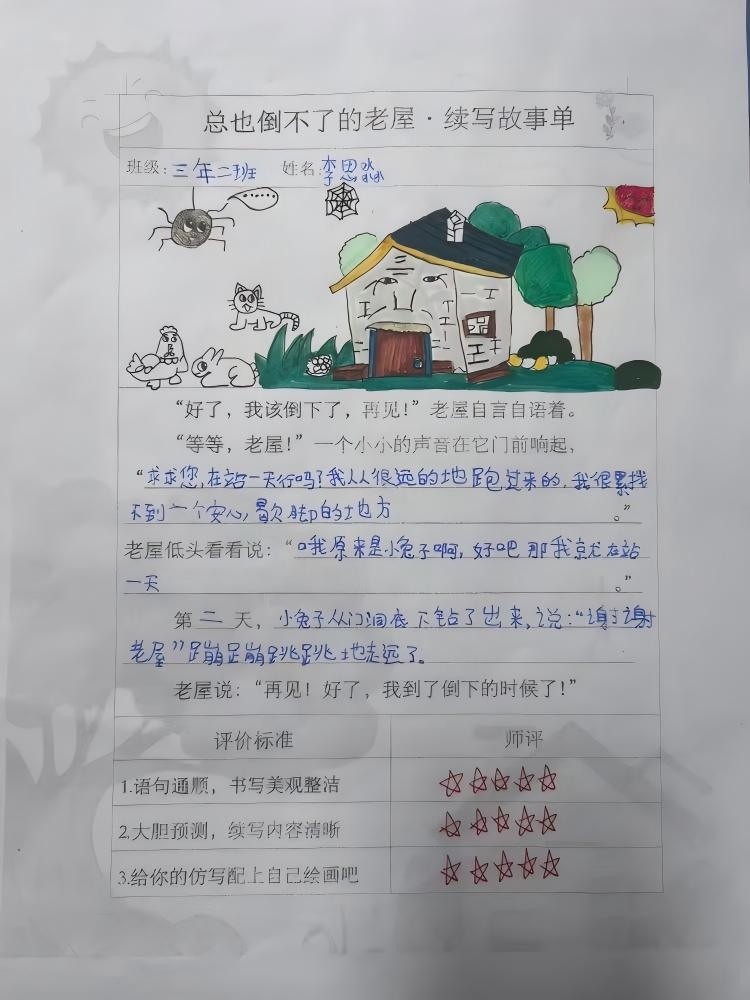 总也倒不了的老屋·续写故事单
班级:三年二班 姓名:李思淼
“好了，我该倒下了，再见!”老屋自言自语着。
“等等，老屋!”一个小小的声音在它门前响起，
“求求您,在站一天行吗?我从很远的地跑过来的,我很累找
不到一个安心,歇脚的地方。”
老屋低头看看说:“哦原来是小兔子啊,好吧那我就在站
一天。”
第二天，小兔子从门洞底下钻了出来,说:“谢谢
老屋”蹦蹦跳跳地走远了。
老屋说:“再见!好了，我到了倒下的时候了!”
评价标准 师评
1.语句通顺，书写美观整洁 ☆☆☆☆☆
2.大胆预测，续写内容清晰 ☆☆☆☆☆
3.给你的仿写配上自己绘画吧 ☆☆☆☆☆